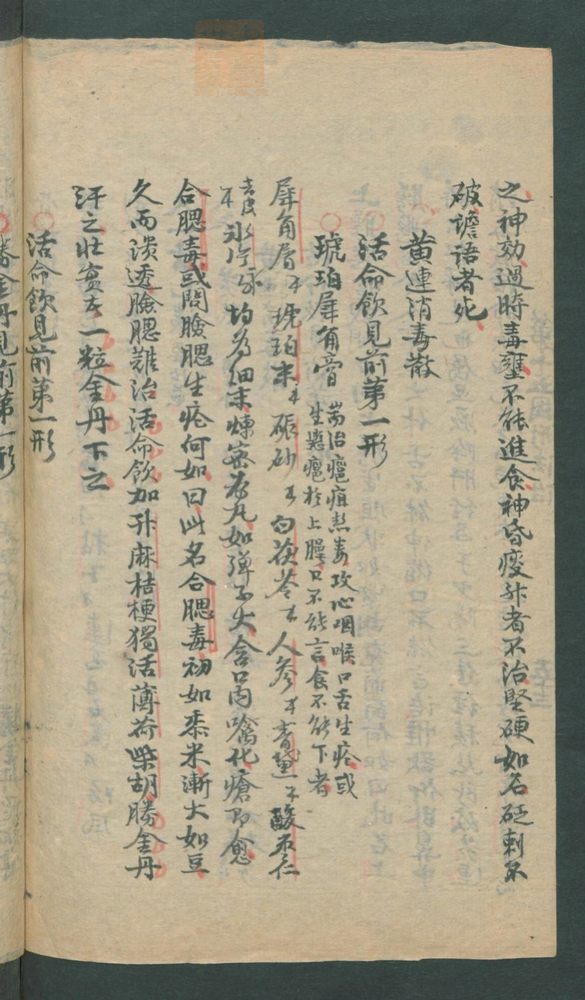 之神効過時毒壅不能進食神昏痰喘者不治堅硬如石砭刺不
破譫語者死
黄連消毒散
活命飲見前第一形
琥珀犀角膏 耑治癰疽熱毒攻心咽喉口舌生瘡或
生惡瘡於上腭口不能言食不能下者
犀角屑 琥珀末 硃砂 白茯苓 人參 酸枣仁
氷片 均為細末煉蜜為丸如弹子大含口内噙化瘡即愈
合腮毒或問臉腮生疮何如曰此名合腮毒初如黍米漸大如豆
久而潰透臉腮難治活命飲加升麻桔梗獨活薄荷柴胡勝金丹
汗之壮實者一粒金丹下之
活命飲見前第一形
勝金丹見前第一形